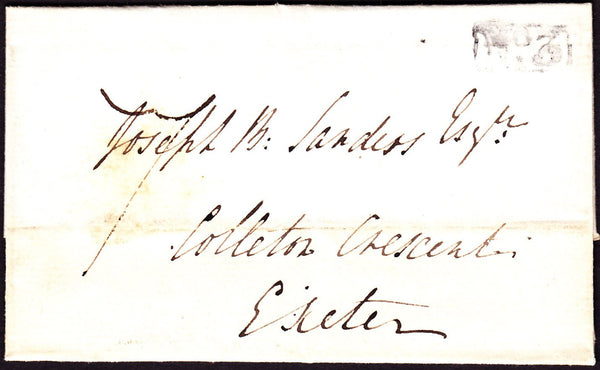 Joseph B: Sanders Esqr.
Colleton Crescent
Exeter